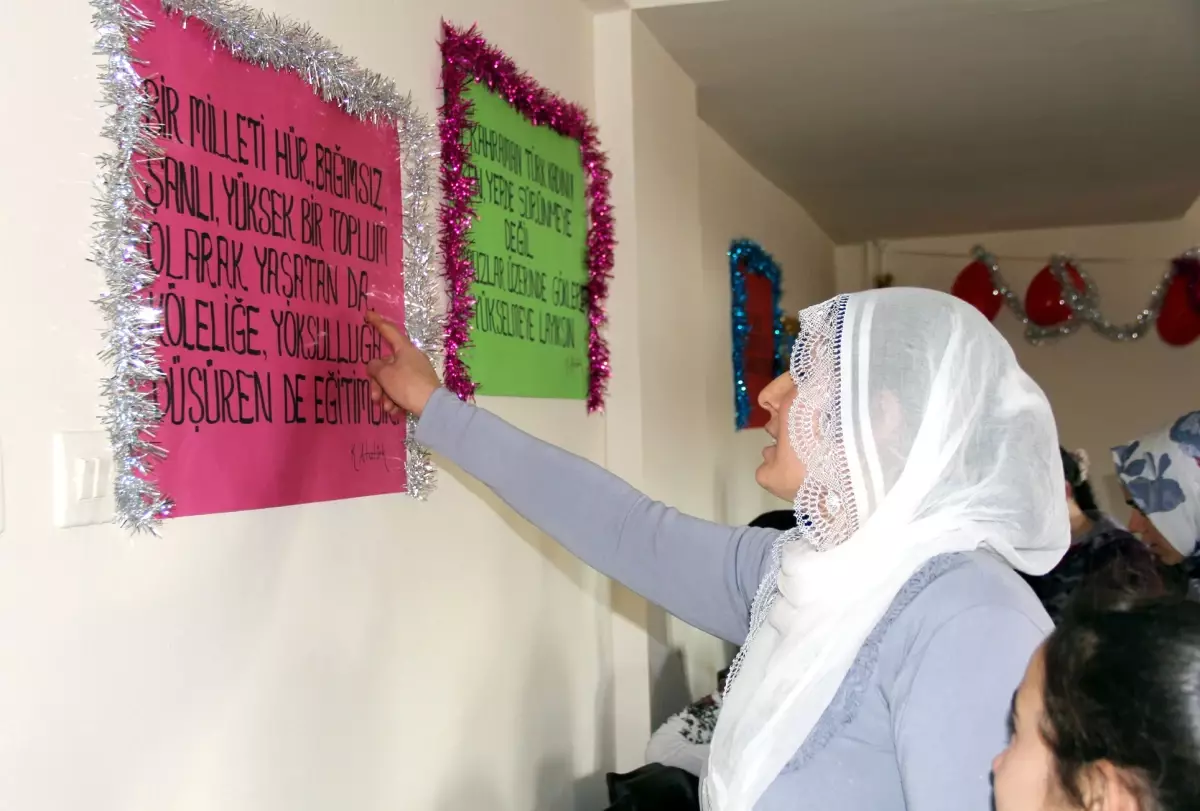 BİR MİLLETİ HÜR, BAĞIMSIZ,
ŞANLI, YÜKSEK BİR TOPLUM
OLARAK YAŞATAN DA,
KÖLELİĞE, YOKSULLUĞA
DÜŞÜREN DE EĞİTİMDİR.
K. Atatürk
KAHRAMAN TÜRK KADINI
SEN, YERDE SÜRÜNMEYE
DEĞİL
OMUZLAR ÜZERİNDE GÖKLERE
YÜKSELMEYE LAYIKSIN